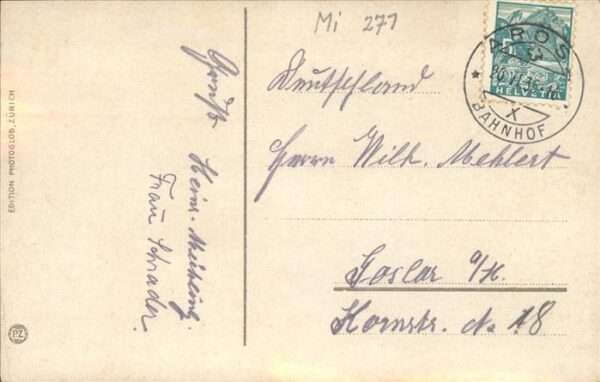 Mi 271
Deutschland
Herrn Wilh. Mehlert
Goslar a/H.
Kornstr. No 18
Frau Schrader.
AROSA
BAHNHOF
HELVETIA
EDITION PHOTOGLOB, ZÜRICH
PZ